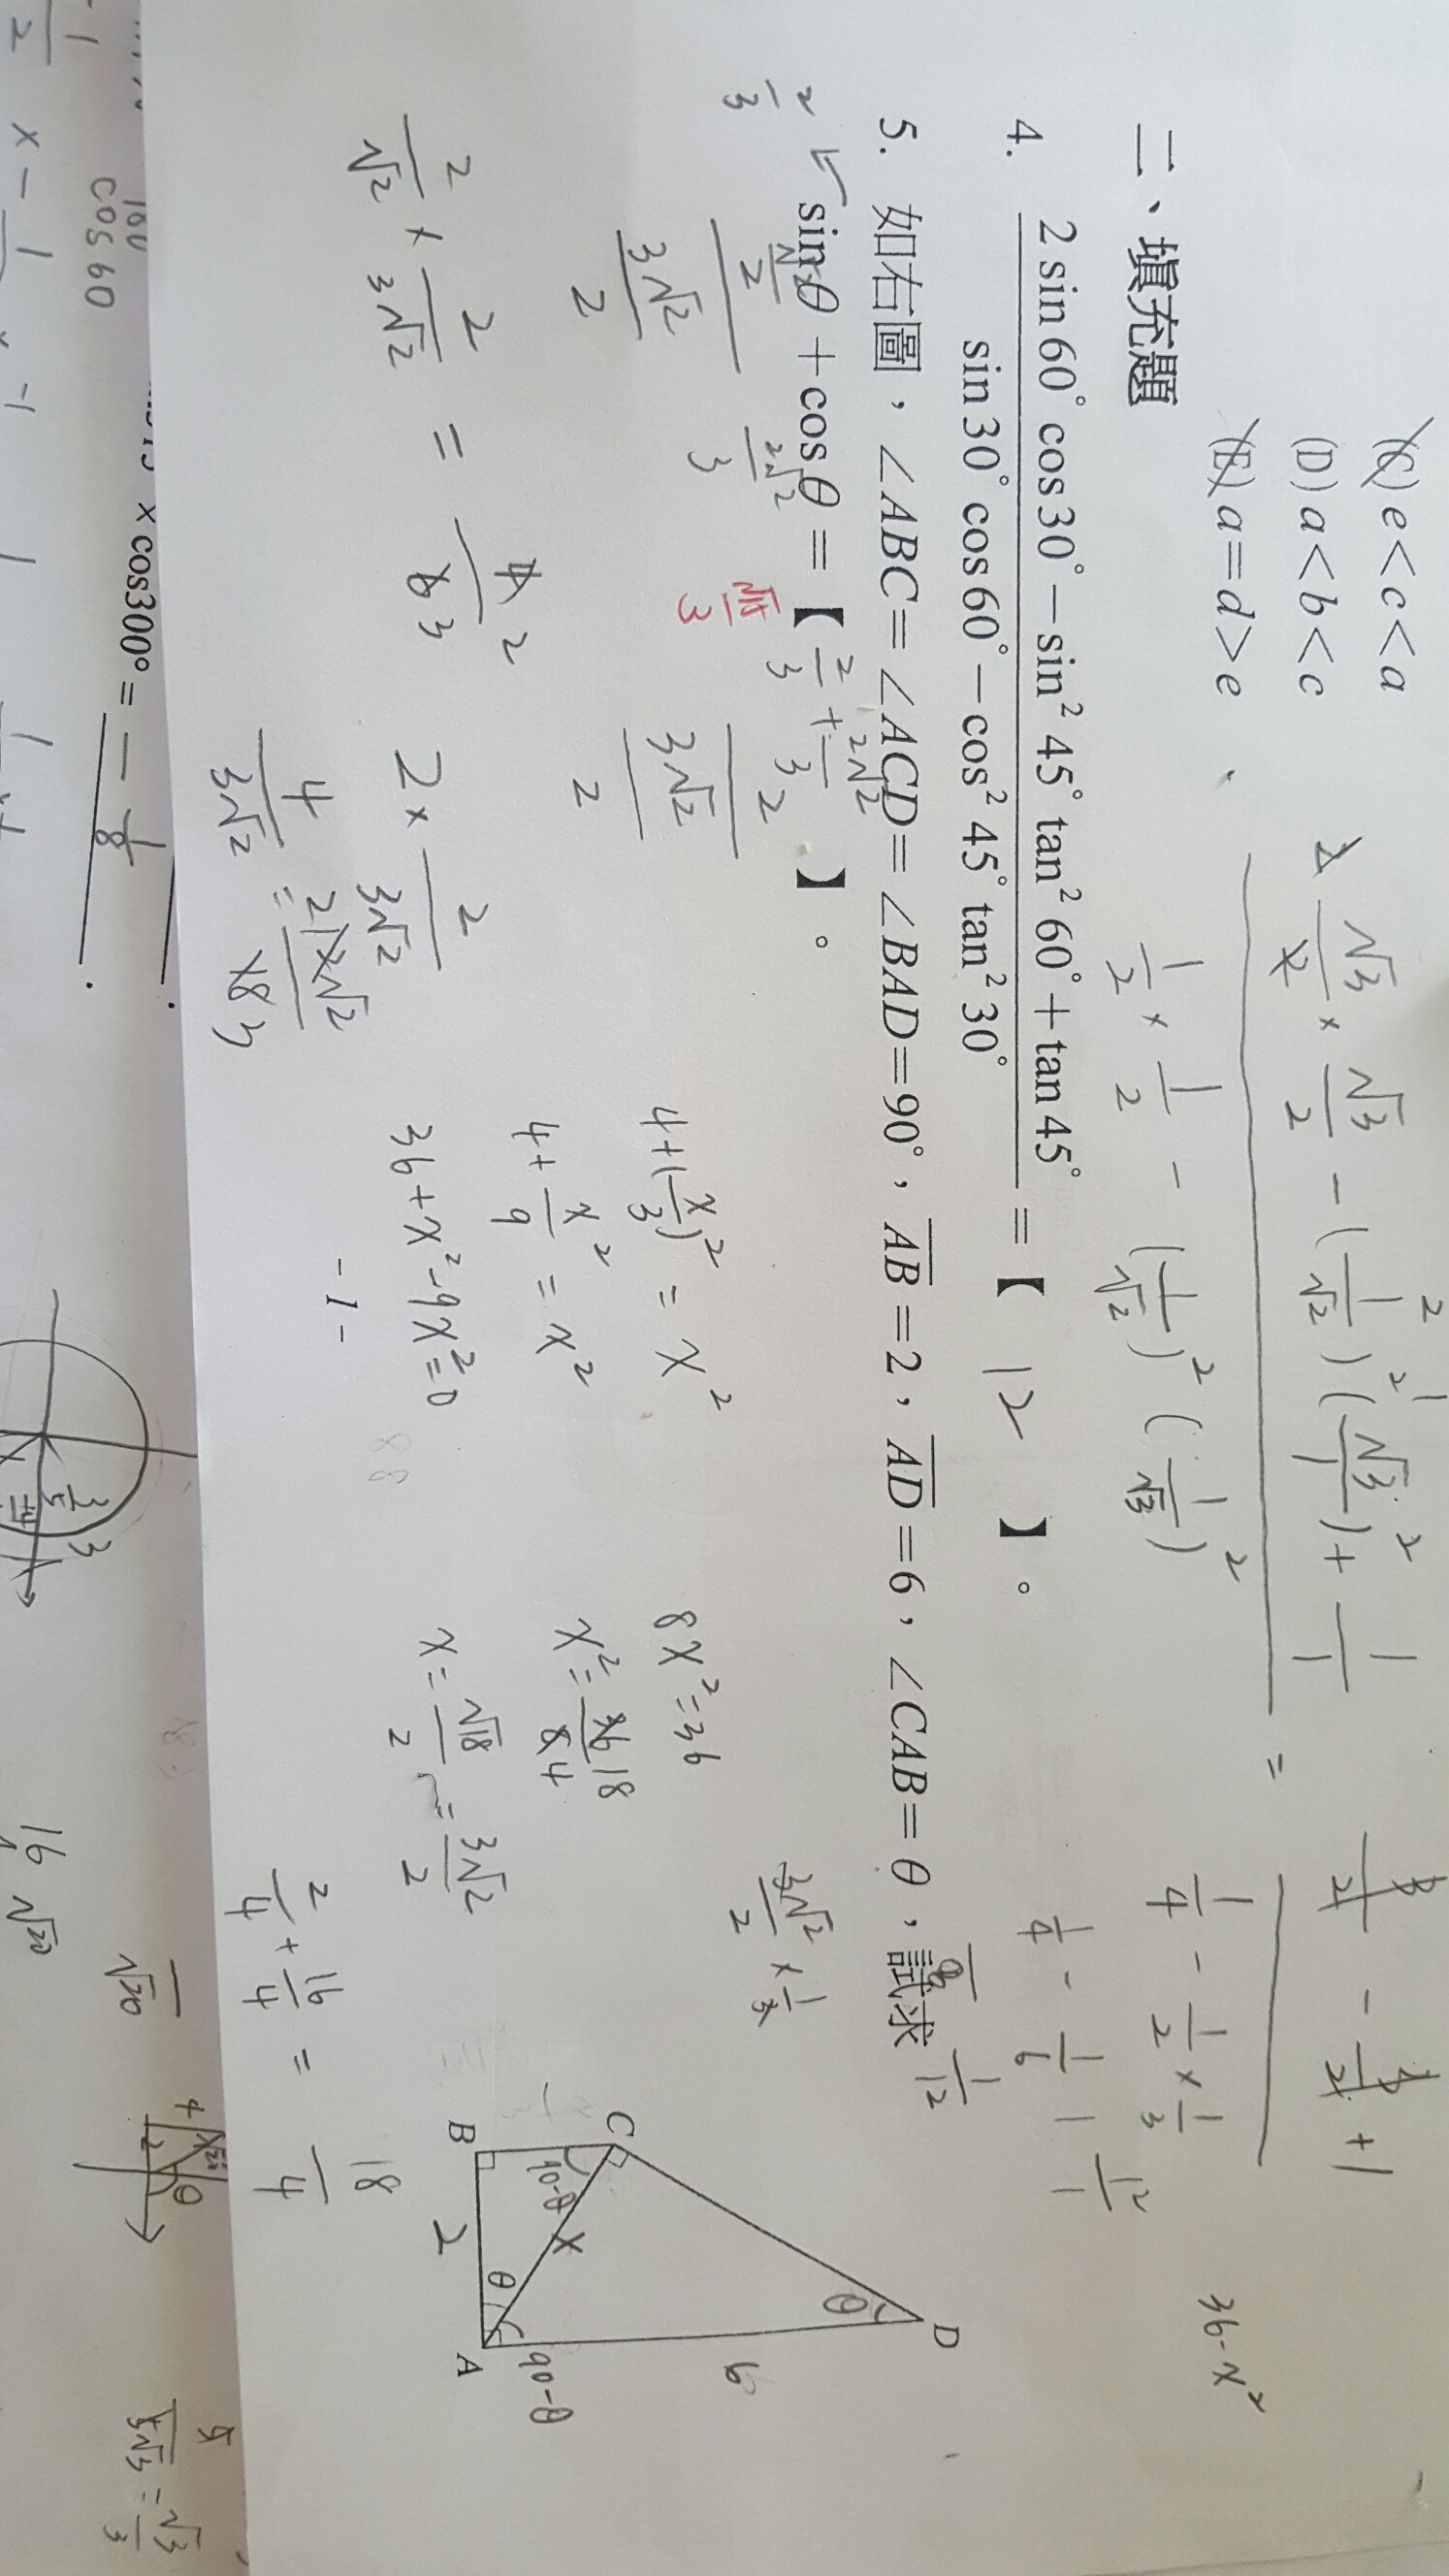 (C) e<c<a
(D) a<b<c
(E) a=d>e
二、填充題
4. (2 sin60° cos30° − sin² 45° tan² 60° + tan45°) / (sin30° cos60° − cos² 45° tan² 30°) = 【 12 】。
2 √3/2 × √3/2 − (1/√2)² (√3/1)² + 1/1
1/2 × 1/2 − (1/√2)² (1/√3)²
=
3/2 − 3/2 + 1
1/4 − 1/2 × 1/3
1/4 − 1/6
1/12
12/1
36-x²
5. 如右圖，∠ABC=∠ACD=∠BAD=90°，AB=2，AD=6，∠CAB=θ，試求
sinθ+cosθ=【 2/3 + 2√2/3 】。
2/3
√2/2
3√2/2
2√2/3
2
3√2/2
2/√2 × 2/3√2 = 4/6 2/3
2 × 2/3√2
4/3√2 = 12√2/18 3
4+(x/3)² = x²
4+x²/9 = x²
36+x²-9x²=0
8x²=36
x²=36/8 18/4
x=√18/2 = 3√2/2
3√2/2 × 1/3
2/4 + 16/4 = 18/4
C
B
A
D
90-θ
x
2
θ
θ
90-θ
6
- 1 -
× cos300° = − 1/8 .
cos 60
16
√20
√20
4
2
θ
√3/3